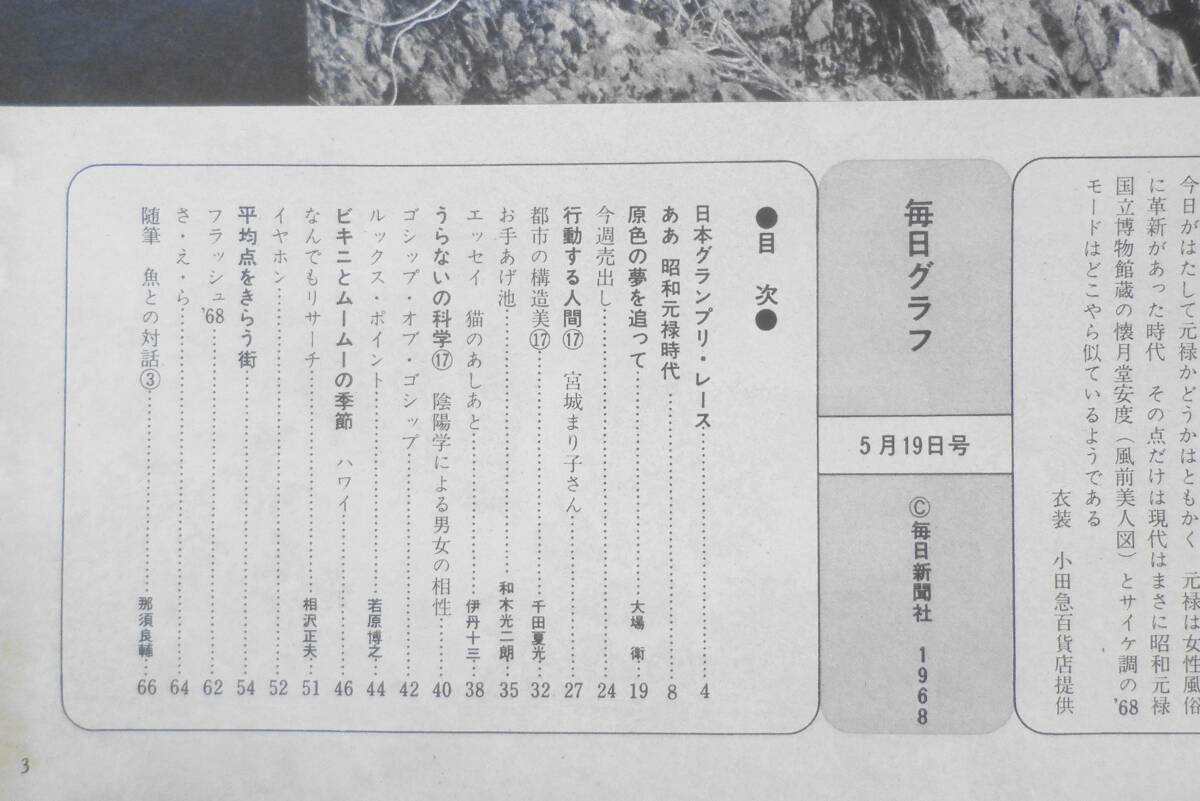 今日がはたして元禄かどうかはともかく 元禄は女性風俗
に革新があった時代 その点だけは現代はまさに昭和元禄
国立博物館蔵の懐月堂安度（風前美人図）とサイケ調の'68
モードはどこやら似ているようである
衣装 小田急百貨店提供
毎日グラフ
5月19日号
©毎日新聞社 1968
●目次●
日本グランプリ・レース……4
ああ 昭和元禄時代……8
原色の夢を追って……大場 衛…19
今週売出し……24
行動する人間⑰ 宮城まり子さん……27
都市の構造美⑰……千田夏光…32
お手あげ池……和木光二朗…35
エッセイ 猫のあしあと……伊丹十三…38
うらないの科学⑰ 陰陽学による男女の相性……40
ゴシップ・オブ・ゴシップ……42
ルックス・ポイント……若原博之…44
ビキニとムームーの季節 ハワイ……46
なんでもリサーチ……相沢正夫…51
イヤホン……52
平均点をきらう街……54
フラッシュ'68……62
さ・え・ら……64
随筆 魚との対話③……那須良輔…66
3